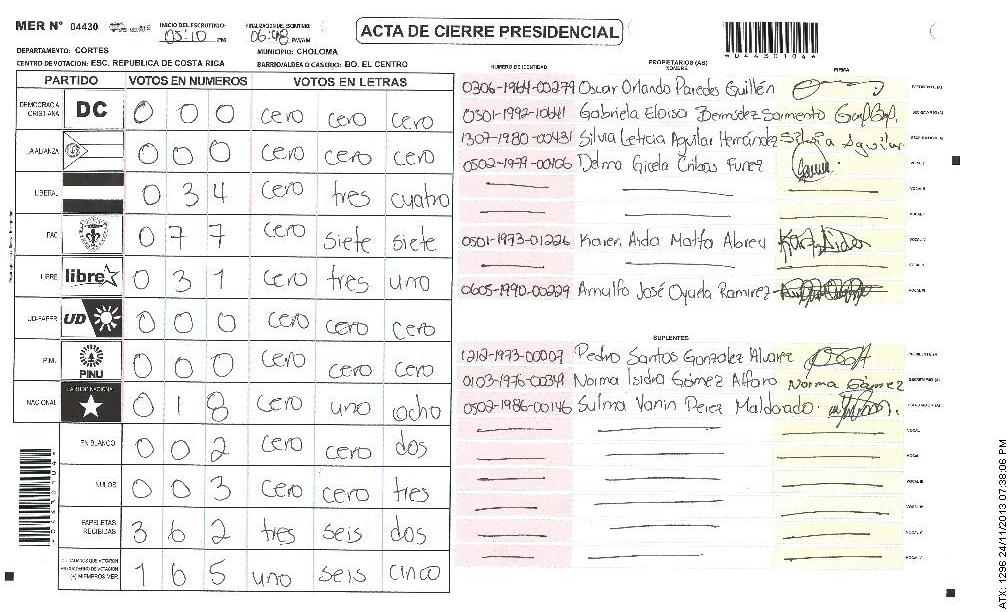 MER N° 04430
INICIO DEL ESCRUTINIO: 05:10 PM
FINALIZACION DEL ESCRUTINIO: 06:48 PM/AM
ACTA DE CIERRE PRESIDENCIAL
*04430104*
DEPARTAMENTO: CORTES
MUNICIPIO: CHOLOMA
CENTRO DE VOTACION: ESC. REPUBLICA DE COSTA RICA
BARRIO/ALDEA O CASERIO: BO. EL CENTRO
PARTIDO VOTOS EN NUMEROS VOTOS EN LETRAS
DEMOCRACIA CRISTIANA DC 0 0 0 cero cero cero
LA ALIANZA 0 0 0 cero cero cero
LIBERAL 0 3 4 cero tres cuatro
PAC 0 7 7 cero siete siete
LIBRE libre 0 3 1 cero tres uno
UD-FAPER UD 0 0 0 cero cero cero
PINU PINU 0 0 0 cero cero cero
NACIONAL PARTIDO NACIONAL 0 1 8 cero uno ocho
EN BLANCO 0 0 2 cero cero dos
NULOS 0 0 3 cero cero tres
PAPELETAS RECIBIDAS 3 6 2 tres seis dos
(+) MIEMBROS MER 1 6 5 uno seis cinco
NUMERO DE IDENTIDAD PROPIETARIOS (AS) NOMBRE FIRMA
0306-1964-00279 Oscar Orlando Paredes Guillén
0501-1992-10641 Gabriela Eloisa Bermúdez Sarmento
1307-1980-00431 Silvia Leticia Aguilar Hernández Silvia Aguilar
0502-1979-00106 Delma Gicela Cribas Funez
0501-1973-01226 Karen Aida Matta Abreu
0605-1990-00229 Arnulfo José Oyuela Ramirez
SUPLENTES
1212-1973-00007 Pedro Santos Gonzalez Alvarez
0103-1976-00349 Norma Isidra Gómez Alfaro Norma Gómez
0502-1986-00146 Sulma Yanin Perez Maldonado
ATX: 1296 24/11/2013 07:38:06 PM